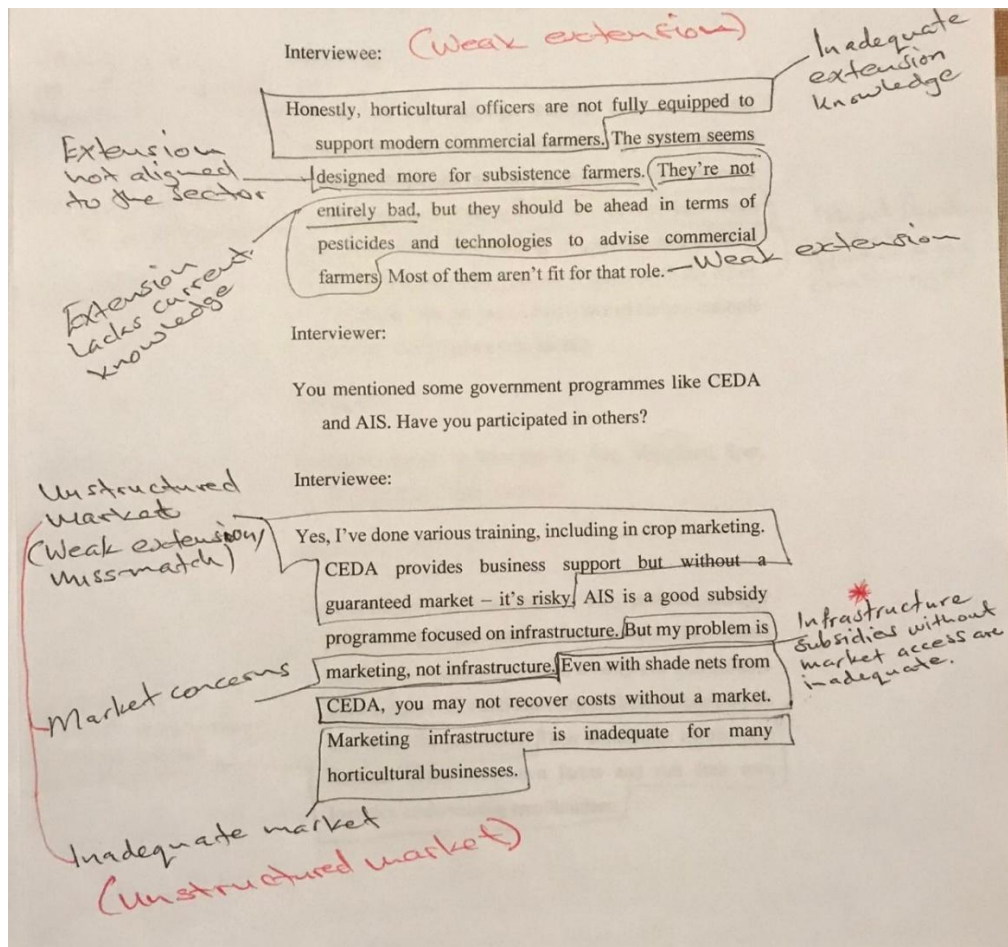 Interviewee:
(Weak extension)
Inadequate
extension
knowledge
Honestly, horticultural officers are not fully equipped to
support modern commercial farmers. The system seems
designed more for subsistence farmers. They're not
entirely bad, but they should be ahead in terms of
pesticides and technologies to advise commercial
farmers. Most of them aren't fit for that role.
Weak extension
Extension
not aligned
to the sector
Extension
Lacks current
knowledge
Interviewer:
You mentioned some government programmes like CEDA
and AIS. Have you participated in others?
Interviewee:
Unstructured
market
(Weak extension/
miss-match)
Yes, I've done various training, including in crop marketing.
CEDA provides business support but without a
guaranteed market – it's risky. AIS is a good subsidy
programme focused on infrastructure. But my problem is
marketing, not infrastructure. Even with shade nets from
CEDA, you may not recover costs without a market.
Marketing infrastructure is inadequate for many
horticultural businesses.
Infrastructure
subsidies without
market access are
inadequate.
Market concerns
Inadequate market
(Unstructured market)